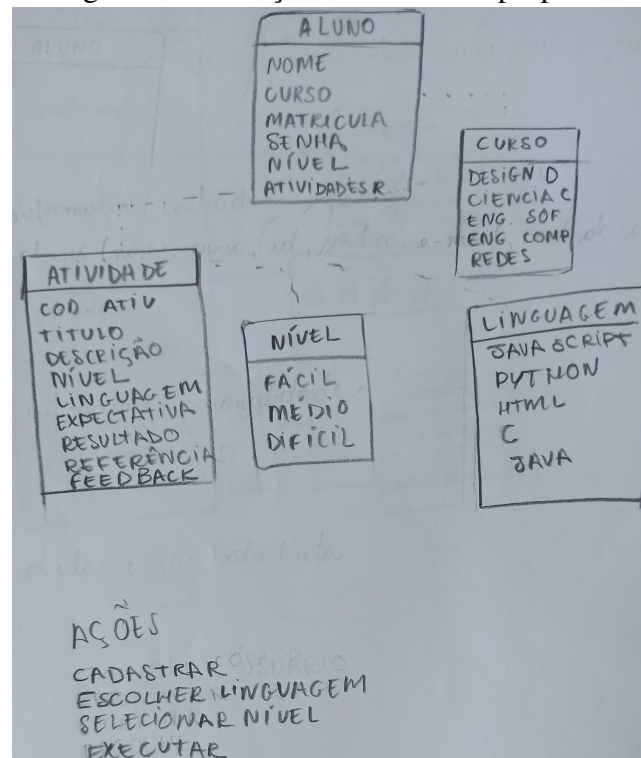 ALUNO
NOME
CURSO
MATRICULA
SENHA
NÍVEL
ATIVIDADESR.
CURSO
DESIGN D
CIENCIA C
ENG. SOF
ENG COMP
REDES
ATIVIDADE
COD. ATIV
TITULO
DESCRIÇÃO
NÍVEL
LINGUAGEM
EXPECTATIVA
RESULTADO
REFERÊNCIA
FEEDBACK
NÍVEL
FÁCIL
MÉDIO
DIFÍCIL
LINGUAGEM
JAVA SCRIPT
PYTHON
HTML
C
JAVA
AÇÕES
CADASTRAR
ESCOLHER LINGUAGEM
SELECIONAR NÍVEL
EXECUTAR